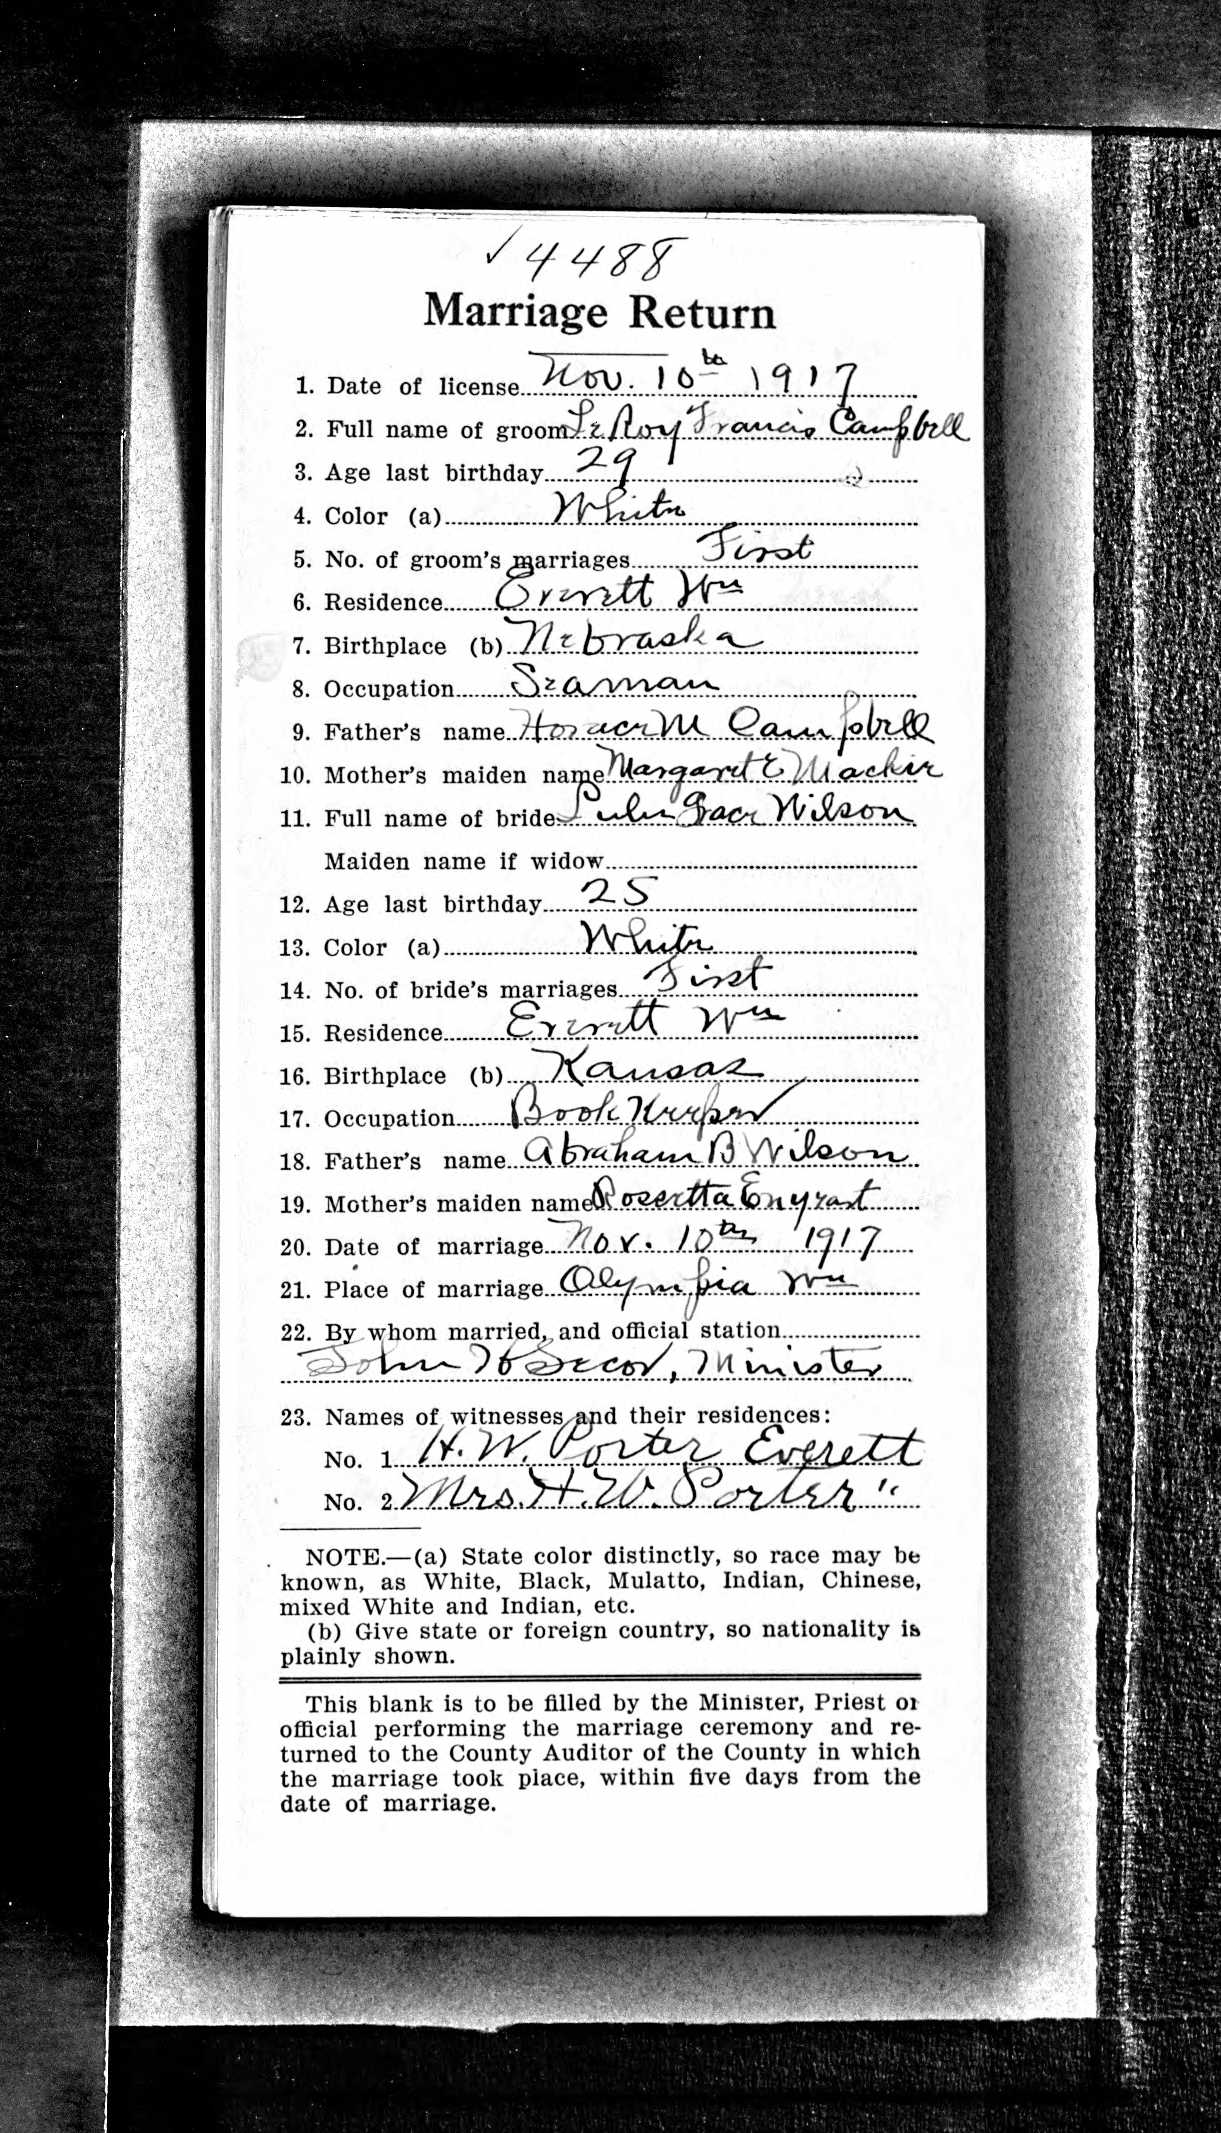 ✓ 4488
Marriage Return
1. Date of license Nov. 10th 1917
2. Full name of groom Le Roy Francis Campbell
3. Age last birthday 29
4. Color (a) White
5. No. of groom's marriages First
6. Residence Everett Wn
7. Birthplace (b) Nebraska
8. Occupation Seaman
9. Father's name Horace M Campbell
10. Mother's maiden name Margaret E Mackie
11. Full name of bride Grace Wilson
Maiden name if widow
12. Age last birthday 25
13. Color (a) White
14. No. of bride's marriages First
15. Residence Everett Wn
16. Birthplace (b) Kansas
17. Occupation Book Keeper
18. Father's name Abraham B Wilson
19. Mother's maiden name Rosetta Enyeart
20. Date of marriage Nov. 10th 1917
21. Place of marriage Olympia Wn
22. By whom married, and official station
John H Secor, Minister
23. Names of witnesses and their residences:
No. 1 H. W. Porter Everett
No. 2 Mrs. H. W. Porter "
NOTE.—(a) State color distinctly, so race may be
known, as White, Black, Mulatto, Indian, Chinese,
mixed White and Indian, etc.
(b) Give state or foreign country, so nationality is
plainly shown.
This blank is to be filled by the Minister, Priest or
official performing the marriage ceremony and re-
turned to the County Auditor of the County in which
the marriage took place, within five days from the
date of marriage.